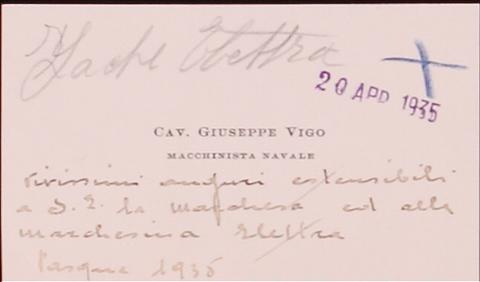 Yacht Elettra
20 APR 1935
CAV. GIUSEPPE VIGO
MACCHINISTA NAVALE
vivissimi auguri estensibili
a S. E. la marchesa ed alla
marchesina Elettra
Pasqua 1935